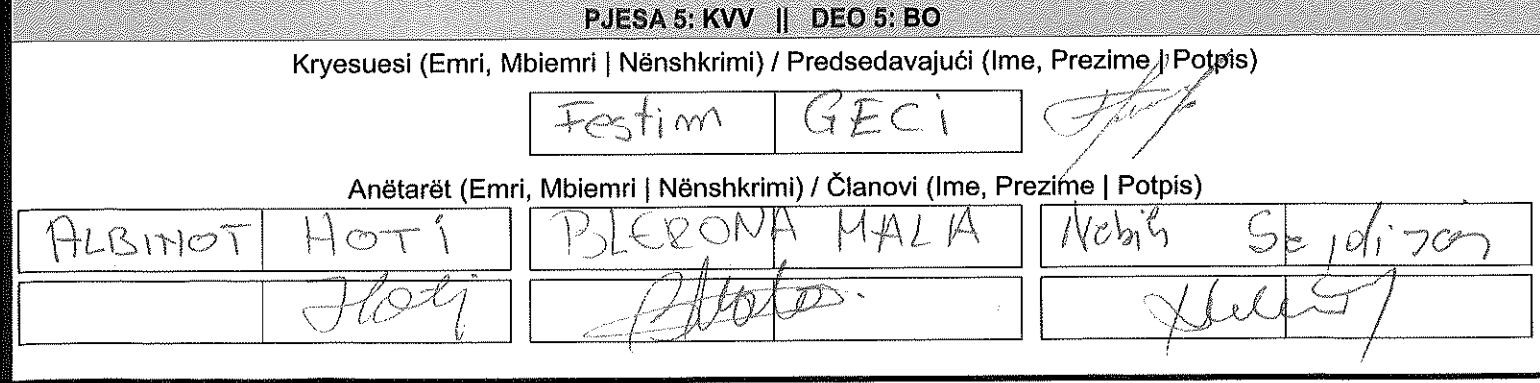 PJESA 5: KVV || DEO 5: BO
Kryesuesi (Emri, Mbiemri | Nënshkrimi) / Predsedavajući (Ime, Prezime | Potpis)
Festim GECI
Anëtarët (Emri, Mbiemri | Nënshkrimi) / Članovi (Ime, Prezime | Potpis)
ALBINOT HOTI BLERONA MALIA Nebih
Hoti